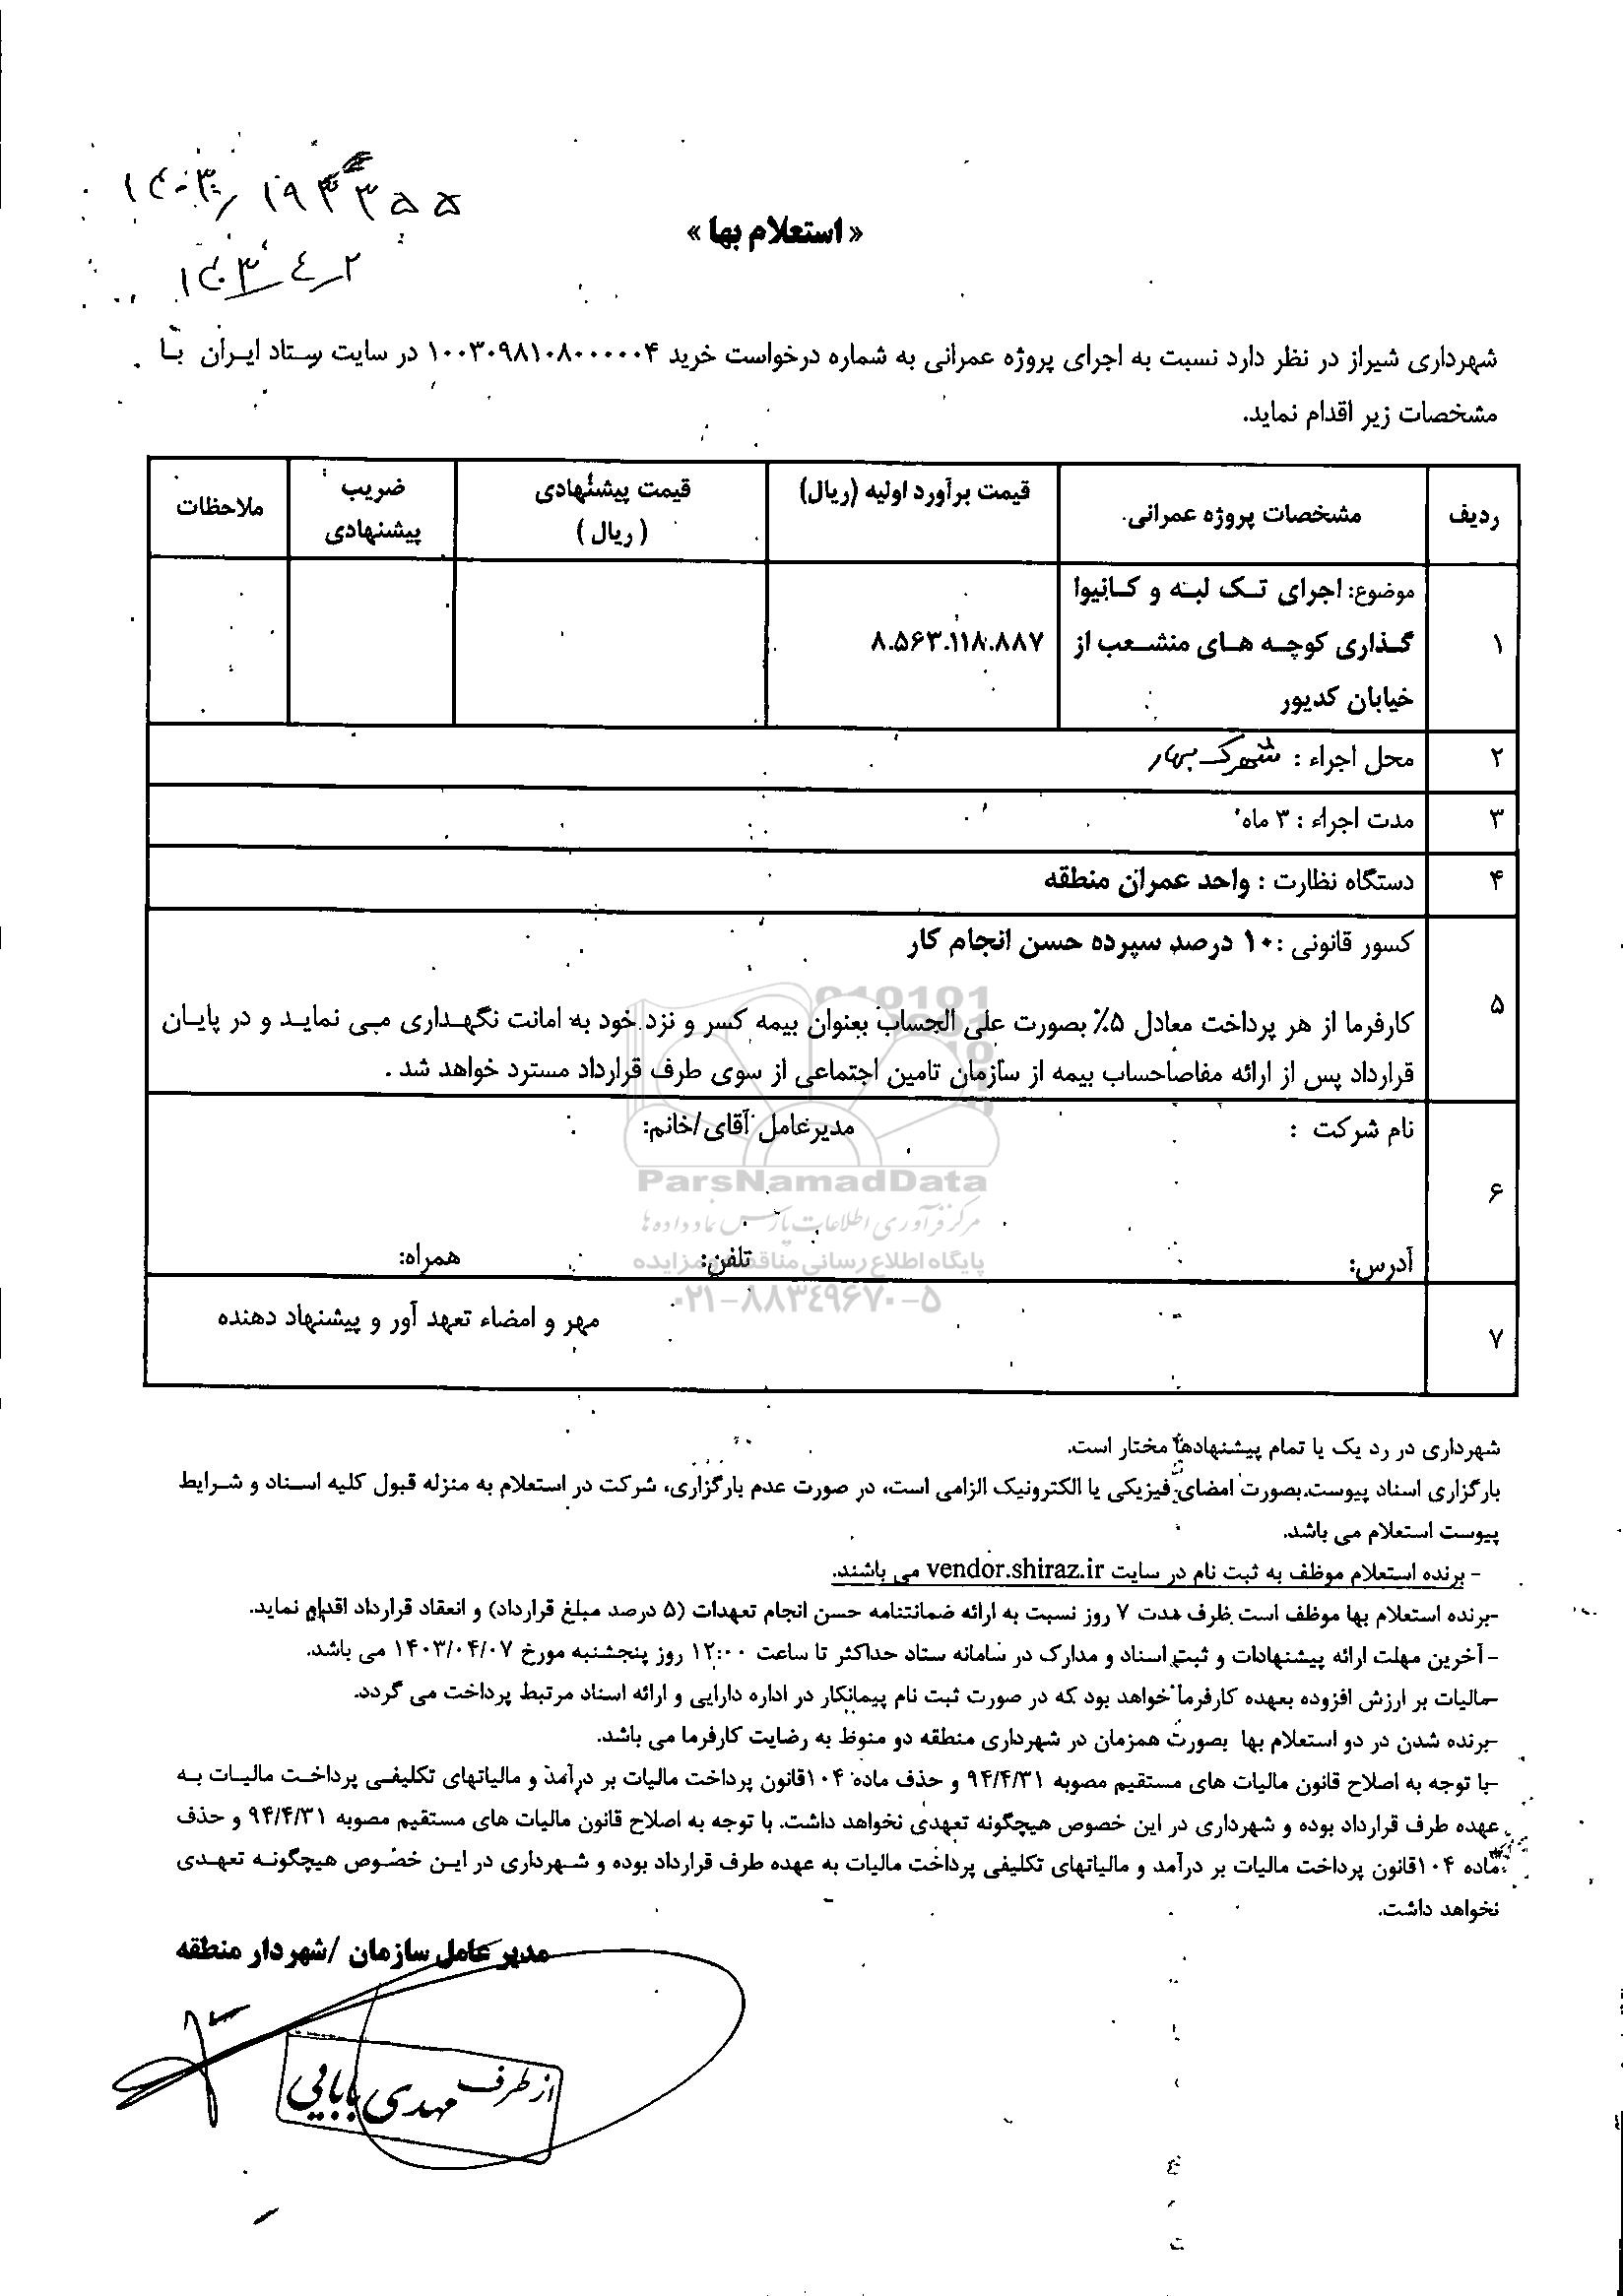 ۱۴۰۳/۱۹۴۳۵۵
۱۴۰۳/۴/۲
« استعلام بها »
شهرداری شیراز در نظر دارد نسبت به اجرای پروژه عمرانی به شماره درخواست خرید ۱۰۰۳۰۹۸۱۰۸۰۰۰۰۰۴ در سایت ستاد ایران با
مشخصات زیر اقدام نماید.
ردیف مشخصات پروژه عمرانی قیمت برآورد اولیه (ریال) قیمت پیشنهادی (ریال) ضریب پیشنهادی ملاحظات
موضوع: اجرای تک لبه و کانیوا
۱ گذاری کوچه های منشعب از ۸.۵۶۳.۱۱۸.۸۸۷
خیابان کدیور
۲ محل اجراء : شهرک بهار
۳ مدت اجراء : ۳ ماه
۴ دستگاه نظارت : واحد عمران منطقه
کسور قانونی :۱۰ درصد سپرده حسن انجام کار
۵ کارفرما از هر پرداخت معادل ۵٪ بصورت علی الحساب بعنوان بیمه کسر و نزد خود به امانت نگهداری می نماید و در پایان
قرارداد پس از ارائه مفاصاحساب بیمه از سازمان تامین اجتماعی از سوی طرف قرارداد مسترد خواهد شد .
نام شرکت : مدیرعامل آقای/خانم:
ParsNamadData
۶
مرکز فرآوری اطلاعات پارس نماد داده ها
آدرس: تلفن: همراه:
پایگاه اطلاع رسانی مناقصه و مزایده
۰۲۱-۸۸۳۴۹۶۷۰-۵
۷ مهر و امضاء تعهد آور و پیشنهاد دهنده
شهرداری در رد یک یا تمام پیشنهادها مختار است.
بارگزاری اسناد پیوست بصورت امضای فیزیکی یا الکترونیک الزامی است، در صورت عدم بارگزاری، شرکت در استعلام به منزله قبول کلیه اسناد و شرایط
پیوست استعلام می باشد.
- برنده استعلام موظف به ثبت نام در سایت vendor.shiraz.ir می باشند.
-برنده استعلام بها موظف است ظرف مدت ۷ روز نسبت به ارائه ضمانتنامه حسن انجام تعهدات (۵ درصد مبلغ قرارداد) و انعقاد قرارداد اقدام نماید.
- آخرین مهلت ارائه پیشنهادات و ثبت اسناد و مدارک در سامانه ستاد حداکثر تا ساعت ۱۲:۰۰ روز پنجشنبه مورخ ۱۴۰۳/۰۴/۰۷ می باشد.
-مالیات بر ارزش افزوده بعهده کارفرما خواهد بود که در صورت ثبت نام پیمانکار در اداره دارایی و ارائه اسناد مرتبط پرداخت می گردد.
-برنده شدن در دو استعلام بها بصورت همزمان در شهرداری منطقه دو منوط به رضایت کارفرما می باشد.
-با توجه به اصلاح قانون مالیات های مستقیم مصوبه ۹۴/۴/۳۱ و حذف ماده ۱۰۴قانون پرداخت مالیات بر درآمد و مالیاتهای تکلیفی پرداخت مالیات به
عهده طرف قرارداد بوده و شهرداری در این خصوص هیچگونه تعهدی نخواهد داشت. با توجه به اصلاح قانون مالیات های مستقیم مصوبه ۹۴/۴/۳۱ و حذف
ماده ۱۰۴قانون پرداخت مالیات بر درآمد و مالیاتهای تکلیفی پرداخت مالیات به عهده طرف قرارداد بوده و شهرداری در این خصوص هیچگونه تعهدی
نخواهد داشت.
مدیر عامل سازمان /شهردار منطقه
از طرف مهدی بابایی